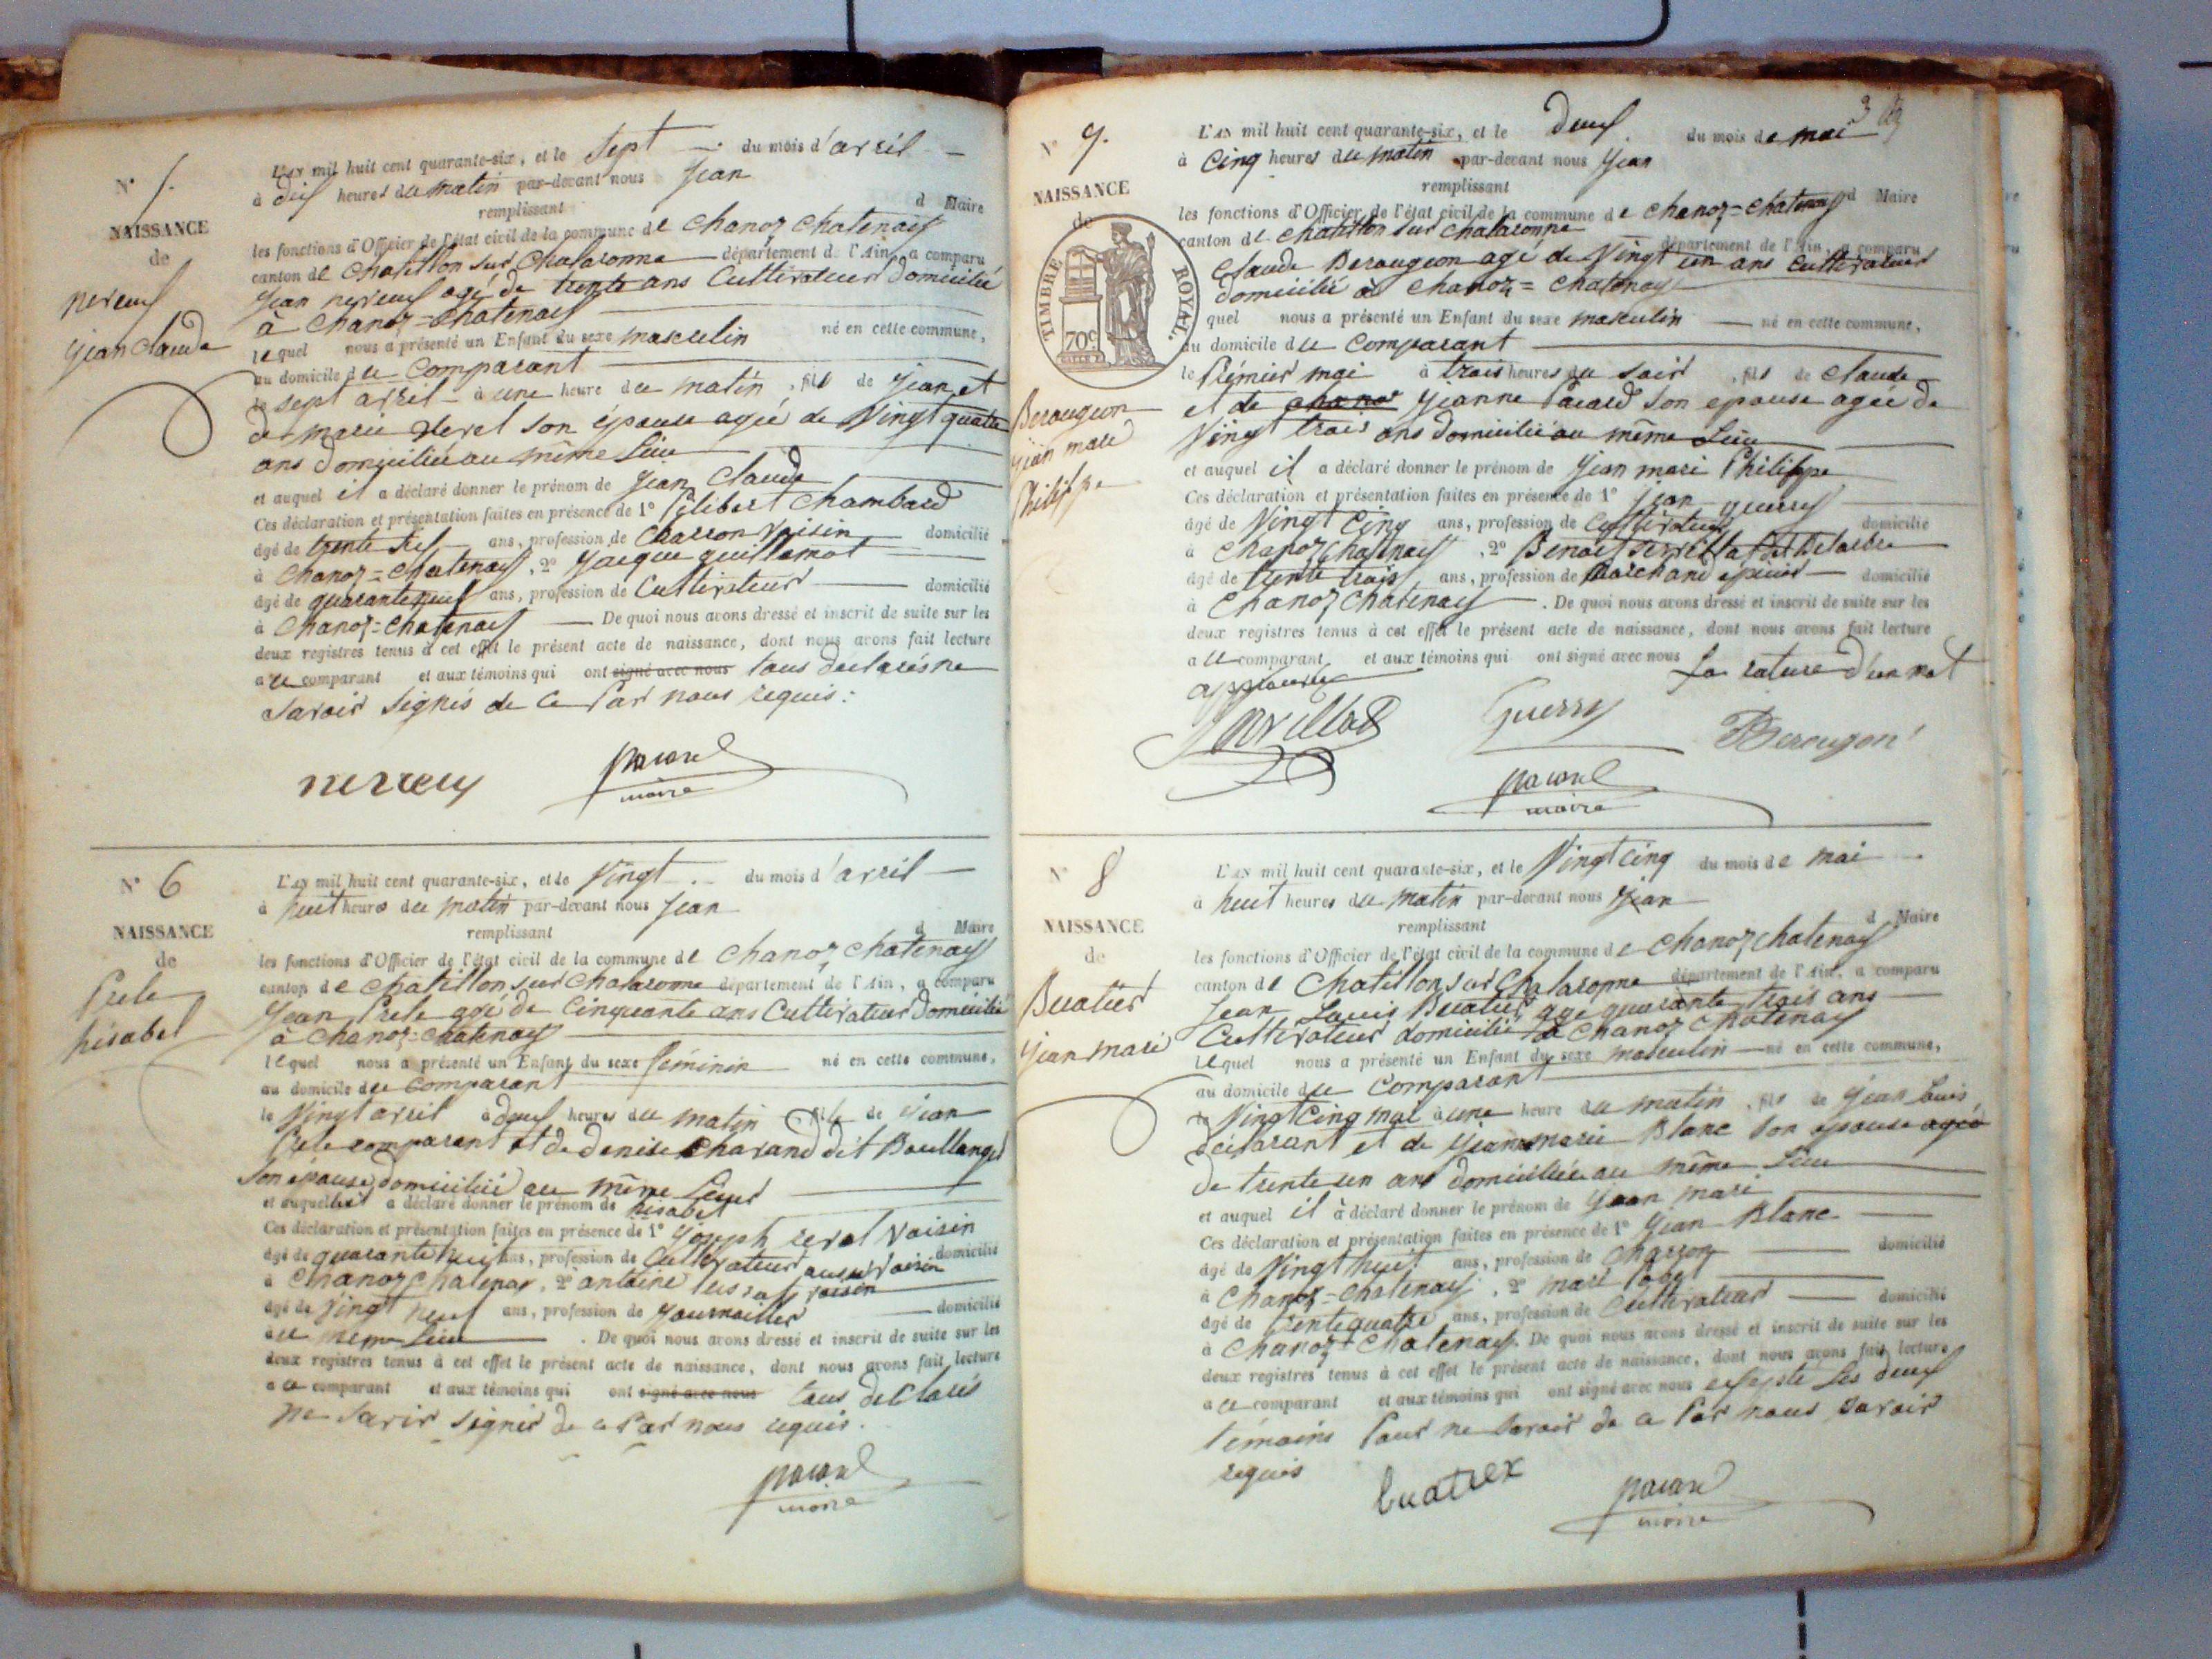 N° 5.
NAISSANCE
de
nereuf
jean Claude
L'AN mil huit cent quarante-six, et le sept du mois d'avril
à dix heures du matin par-devant nous Jean
remplissant d Maire
les fonctions d'Officier de l'état civil de la commune de chanoz chatenay
canton de Chatillon sur Chalaronne département de l'Ain, a comparu
Jean nereuf agé de trente ans Cultivateur domicilié
à Chanoz=Chatenay
lequel nous a présenté un Enfant du sexe masculin né en cette commune,
au domicile du Comparant
le sept avril à une heure du matin, fils de Jean et
de marie revel son épouse agée de Vingt quatre
ans domiciliée au même lieu
et auquel il a déclaré donner le prénom de Jean Claude
Ces déclaration et présentation faites en présence de 1° Philibert Chambard
âgé de trente ans, profession de Charron Voisin domicilié
à Chanoz=Chatenay, 2° Jacque guillemot
âgé de quarante neuf ans, profession de Cultivateur domicilié
à Chanoz=Chatenay De quoi nous avons dressé et inscrit de suite sur les
deux registres tenus à cet effet le présent acte de naissance, dont nous avons fait lecture
au comparant et aux témoins qui ont signé avec nous tous declarés ne
savoir signés de ce Par nous requis:
nereuf
pacard
maire
N° 6
NAISSANCE
de
Prele
hisabel
L'AN mil huit cent quarante-six, et le Vingt du mois d'avril
à huit heures du matin par-devant nous Jean
remplissant d Maire
les fonctions d'Officier de l'état civil de la commune de Chanoz Chatenay
canton de Chatillon sur Chalaronne département de l'Ain, a comparu
Jean Prele agé de Cinquante ans Cultivateur domicilié
à Chanoz=Chatenay
lequel nous a présenté un Enfant du sexe féminin né en cette commune,
au domicile du Comparant
le Vingt avril à deux heures du matin fille de jean
Prele comparant et de denise Charand dit Boullanger
son épouse domiciliée au même lieu
et auquel a déclaré donner le prénom de hisabel
Ces déclaration et présentation faites en présence de 1° Joseph revel Voisin
âgé de quarante huit ans, profession de Cultivateur aussi Voisin domicilié
à Chanoz Chatenay, 2° antoine voisin
âgé de Vingt neuf ans, profession de Journallier domicilié
au meme lieu. De quoi nous avons dressé et inscrit de suite sur les
deux registres tenus à cet effet le présent acte de naissance, dont nous avons fait lecture
au comparant et aux témoins qui ont signé avec nous tous declarés
ne savoir signer de ce Par nous requis.
pacard
maire
3
N° 7.
NAISSANCE
de
TIMBRE ROYAL.
70c
Beraugeon
jean mari
Philippe
L'AN mil huit cent quarante-six, et le deux du mois de mai
à Cinq heures du matin par-devant nous Jean
remplissant
les fonctions d'Officier de l'état civil de la commune de chanoz=chatenay d Maire
canton de chatillon sur chalaronne département de l'Ain, a comparu
Claude Beraugeon agé de Vingt un ans Cultivateur
domicilié à Chanoz=Chatenay
quel nous a présenté un Enfant du sexe masculin né en cette commune,
au domicile du Comparant
le Premier mai à trois heures du soir, fils de Claude
et de chanoz Jeanne Pacard son épouse agée de
Vingt trois ans domiciliée au même Lieu
et auquel il a déclaré donner le prénom de Jean mari Philippe
Ces déclaration et présentation faites en présence de 1° Jean guerry
âgé de Vingt Cinq ans, profession de Cultivateur domicilié
à Chanoz Chatenay, 2° Benoit
âgé de trente trois ans, profession de Marchand épicier domicilié
à Chanoz Chatenay. De quoi nous avons dressé et inscrit de suite sur les
deux registres tenus à cet effet le présent acte de naissance, dont nous avons fait lecture
au comparant et aux témoins qui ont signé avec nous La rature d'un mot
approuvée
Guerry
Beraugon
pacard
maire
N° 8
NAISSANCE
de
Buatier
Jean mari
L'AN mil huit cent quarante-six, et le Vingt Cinq du mois de mai
à huit heures du matin par-devant nous Jean
remplissant d Maire
les fonctions d'Officier de l'état civil de la commune de chanoz chatenay
canton de Chatillon sur Chalaronne département de l'Ain, a comparu
Jean Louis Buatier agé quarante trois ans
Cultivateur domicilié à Chanoz Chatenay
Lequel nous a présenté un Enfant du sexe masculin né en cette commune,
au domicile du Comparant
le Vingt Cinq mai à une heure du matin, fils de Jean Louis,
déclarant et de Jeanne marie Blanc Son épouse agée
de trente un ans domiciliée au même Lieu
et auquel il a déclaré donner le prénom de Jean mari
Ces déclaration et présentation faites en présence de 1° Jean Blanc
âgé de Vingt huit ans, profession de Charron domicilié
à Chanoz=Chatenay, 2° mari
âgé de trente quatre ans, profession de Cultivateur domicilié
à Chanoz=Chatenay. De quoi nous avons dressé et inscrit de suite sur les
deux registres tenus à cet effet le présent acte de naissance, dont nous avons fait lecture
au comparant et aux témoins qui ont signé avec nous exsepté Les deux
témoins Pour ne savoir de ce Par nous savoir
requis
buatier
pacard
maire